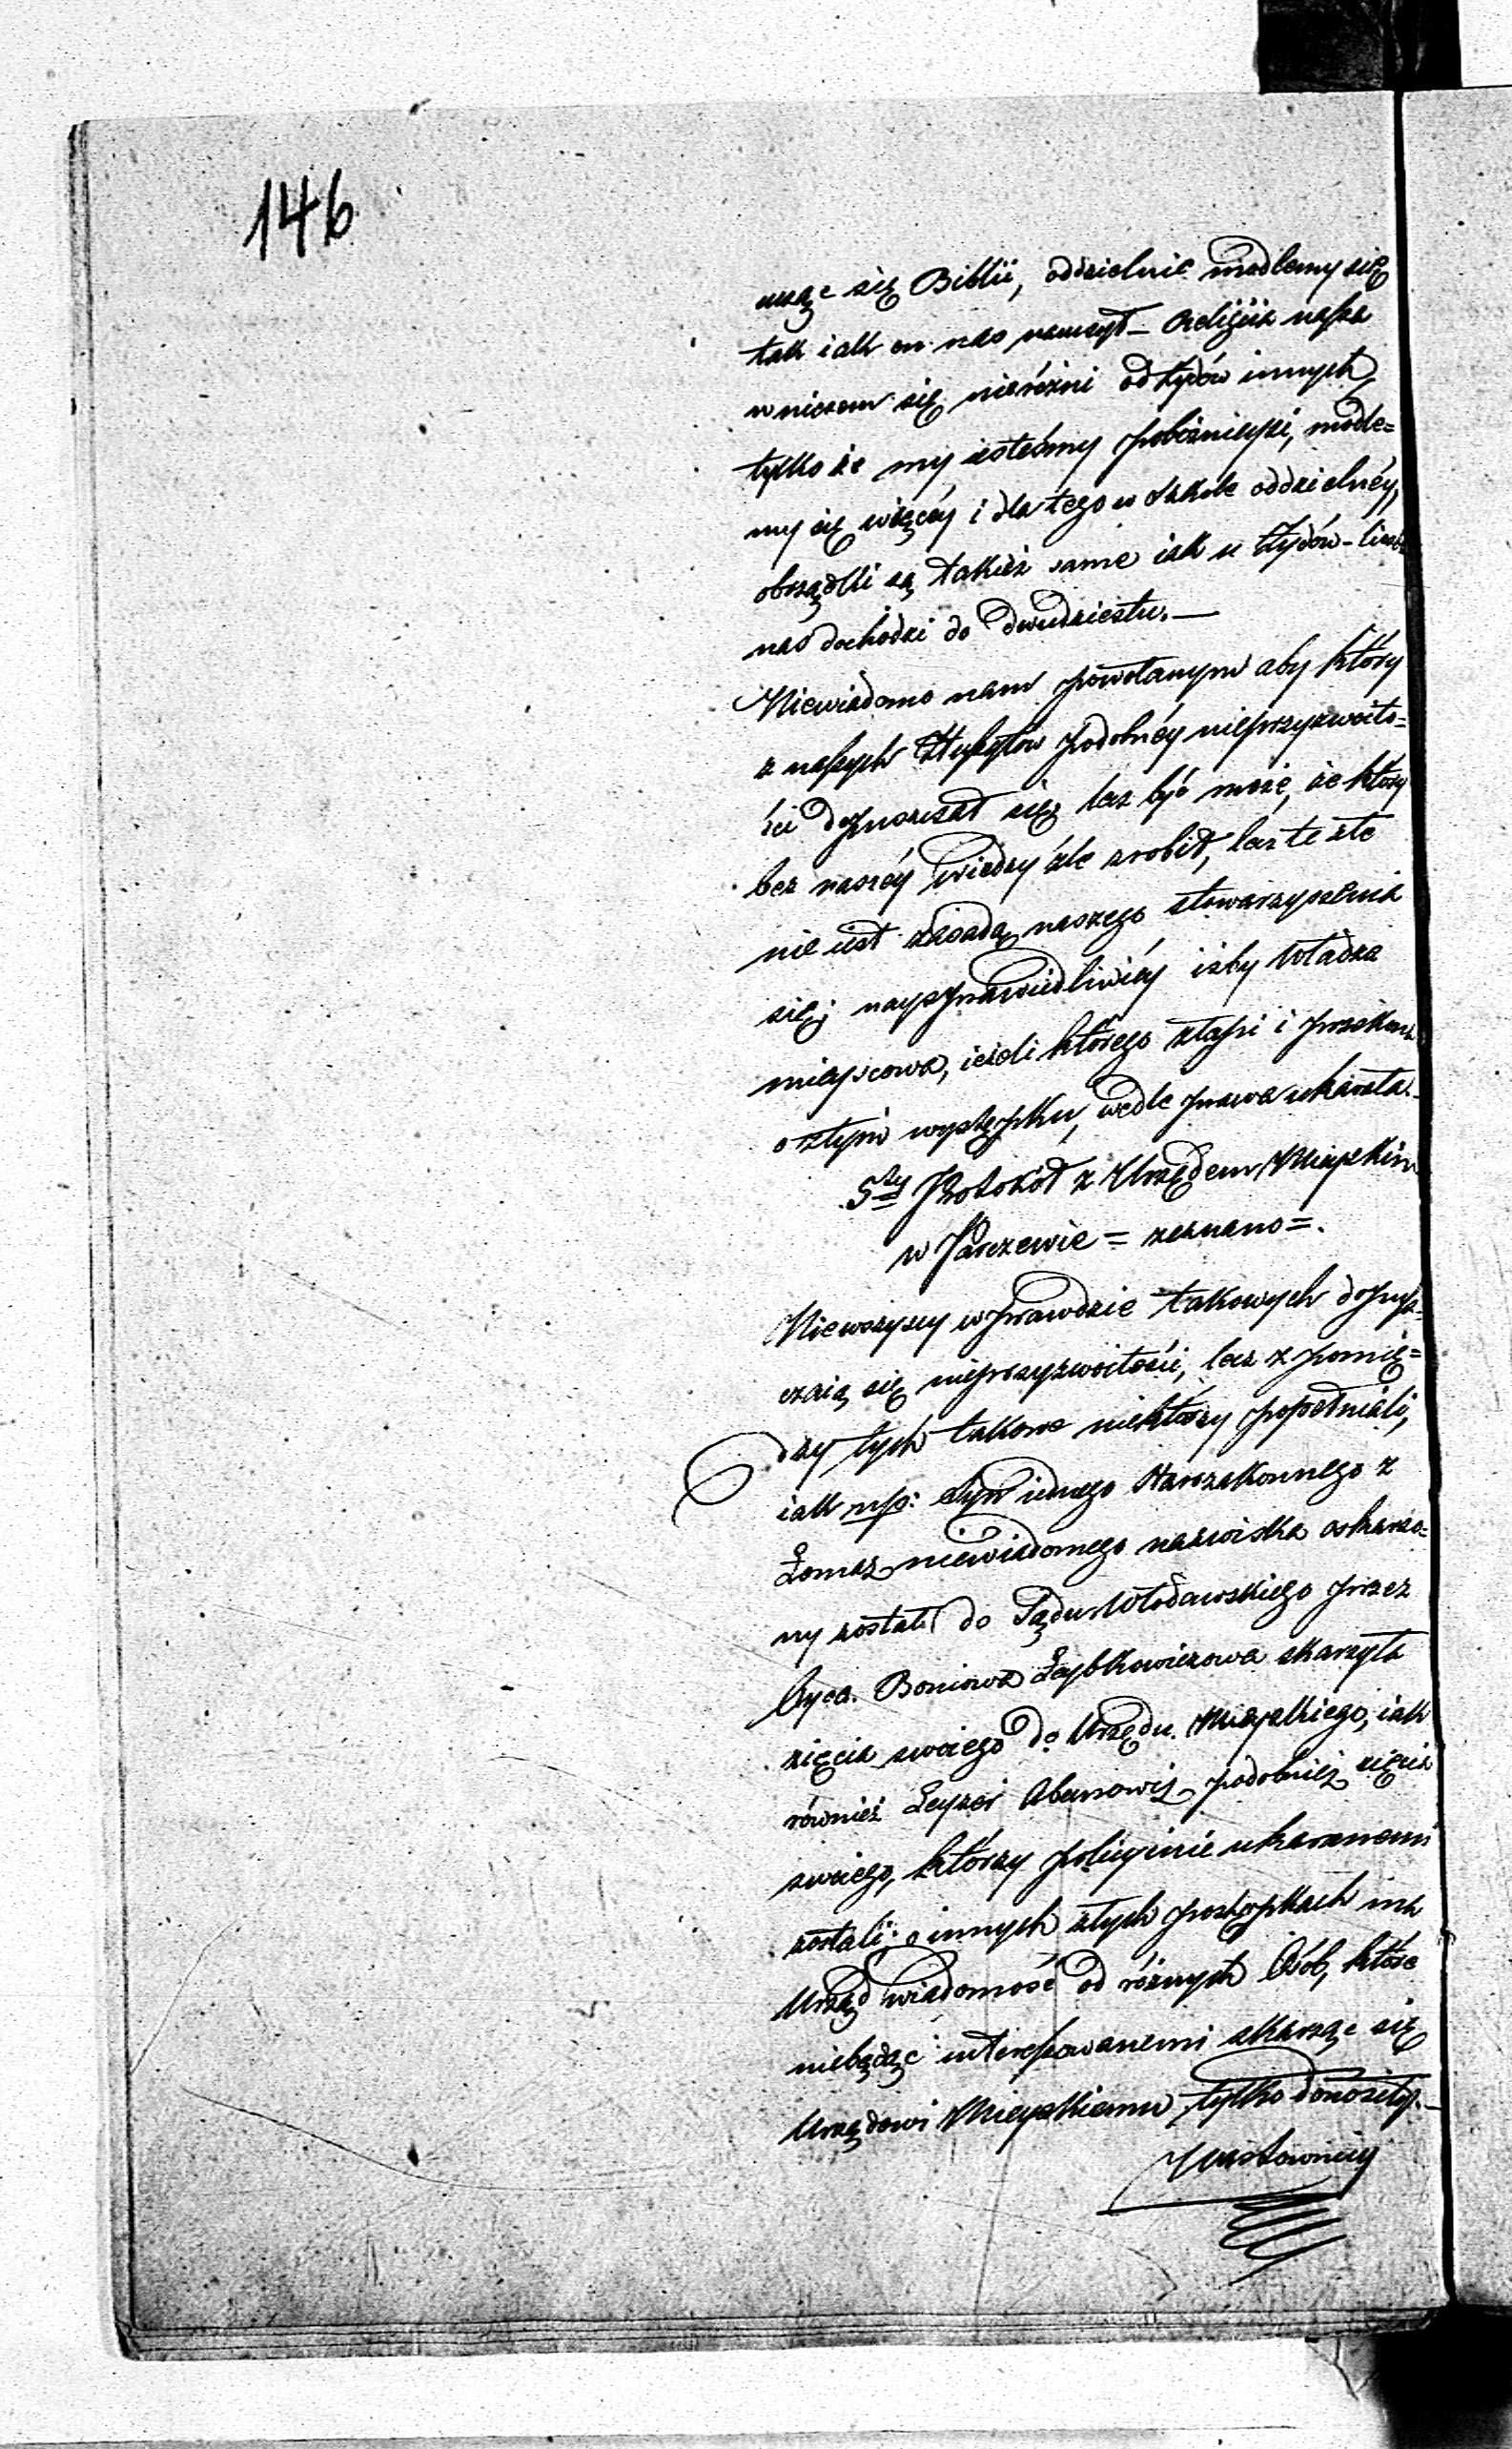 146
ucząc się Biblii, oddzielnie modlemy się
tak iak on nas nauczył – Religiia nasza
w niczem się nieróżni od żydów innych
tylko że my iesteśmy pobożnieysi, modle=
my się więcéy i dla tego w szkole oddzielnéy,
obrządki są takież same iak u Żydów – liczba
nas dochodzi do dwudziestu. —
Niewiadomo nam powołanym aby który
z naszych Hussytów podobnéy nieprzyzwoito=
ści dopuszczał się, lecz być może, że który
bez naszéy wiedzy źle zrobił, lecz te złe
nie iest zasadą naszego stowarzyszenia
się; nayspra­wiedliwiéy iżby Władza
mieyscowa, ieżeli którego złapi i przekona
o złym występku, wedle prawa ukarała.
5ty Protokół z Urzędem Mieyskim
w Parczewie = zeznano =.
Niewszyscy wprawdzie takowych dopusz=
czaią się nieprzyzwoitości, lecz z pomię=
dzy tych takowe niektórzy popełniali,
iak np: Syn iednego Starozakonnego z
Łomaz niewiadomego nazwiska oskarżo=
ny został do Sądu Włodawskiego przez
Oyca. Boniowa Leybkowiczowa skarżyła
zięcia swoiego do Urzędu Mieyskiego, iak
również Leyzor Abramowicz podobnież zięcia
swoiego, którzy policyinie ukaranemi
zostali; o innych złych postępkach ma
Urząd wiadomość od różnych Osób, które
niebędąc interesowanemi skarżąc się
Urzędowi Mieyskiemu tylko donosiły. –